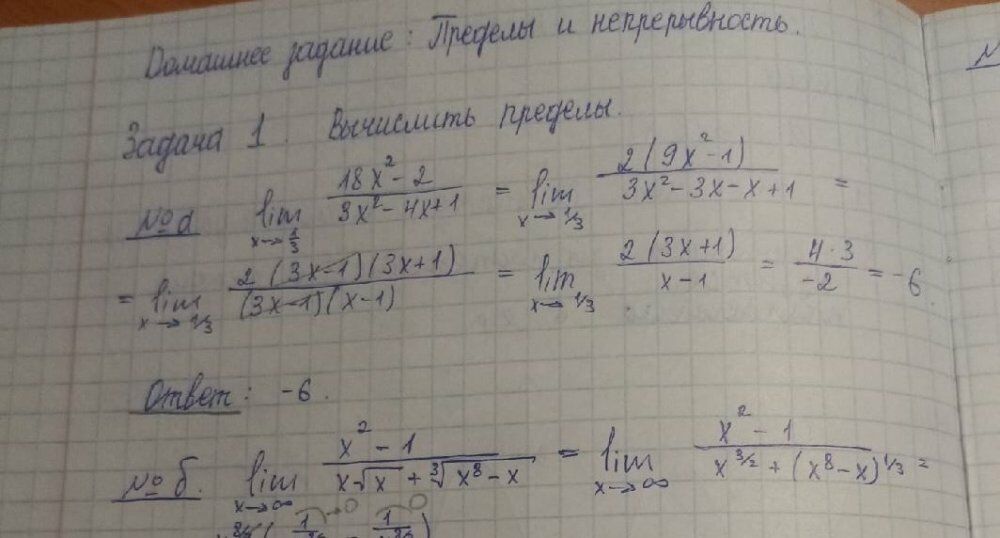 Домашнее задание: Пределы и непрерывность.
N
Задача 1. Вычислить пределы.
№ a lim x→1/3 (18x² - 2)/(3x² - 4x + 1) = lim x→1/3 2(9x² - 1)/(3x² - 3x - x + 1) =
= lim x→1/3 2(3x-1)(3x+1)/(3x-1)(x-1) = lim x→1/3 2(3x+1)/(x-1) = 4·3/-2 = -6.
Ответ: -6.
№ б. lim x→∞ (x² - 1)/(x√x + ∛(x⁸ - x)) = lim x→∞ (x² - 1)/(x^3/2 + (x⁸ - x)^1/3) =